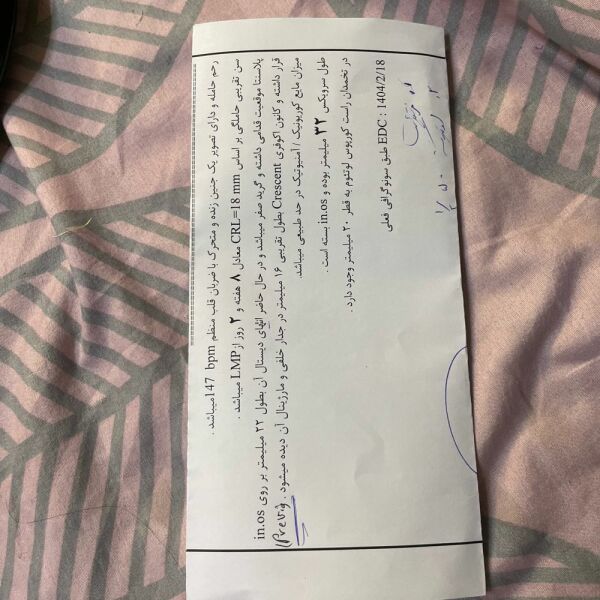 رحم حامله و دارای تصویر یک جنین زنده و متحرک با ضربان قلب منظم 147 bpm میباشد .
سن تقریبی حاملگی بر اساس CRL=18 mm معادل ۸ هفته و ۲ روز از LMP میباشد .
پلاسنتا موقعیت قدامی داشته و گرید صفر میباشد و در حال حاضر انتهای دیستال آن بطول ۲۲ میلیمتر بر روی in.os
قرار داشته و کانون اکوفری Crescent بطول تقریبی ۱۶ میلیمتر در جدار خلفی و مارژینال آن دیده میشود . (Previa)
میزان مایع کوریونیک / آمنیوتیک در حد طبیعی میباشد.
طول سرویکس ۳۲ میلیمتر بوده و in.os بسته است .
در تخمدان راست کورپوس لوتئوم به قطر ۲۰ میلیمتر وجود دارد .
EDC : 1404/2/18 طبق سونوگرافی فعلی